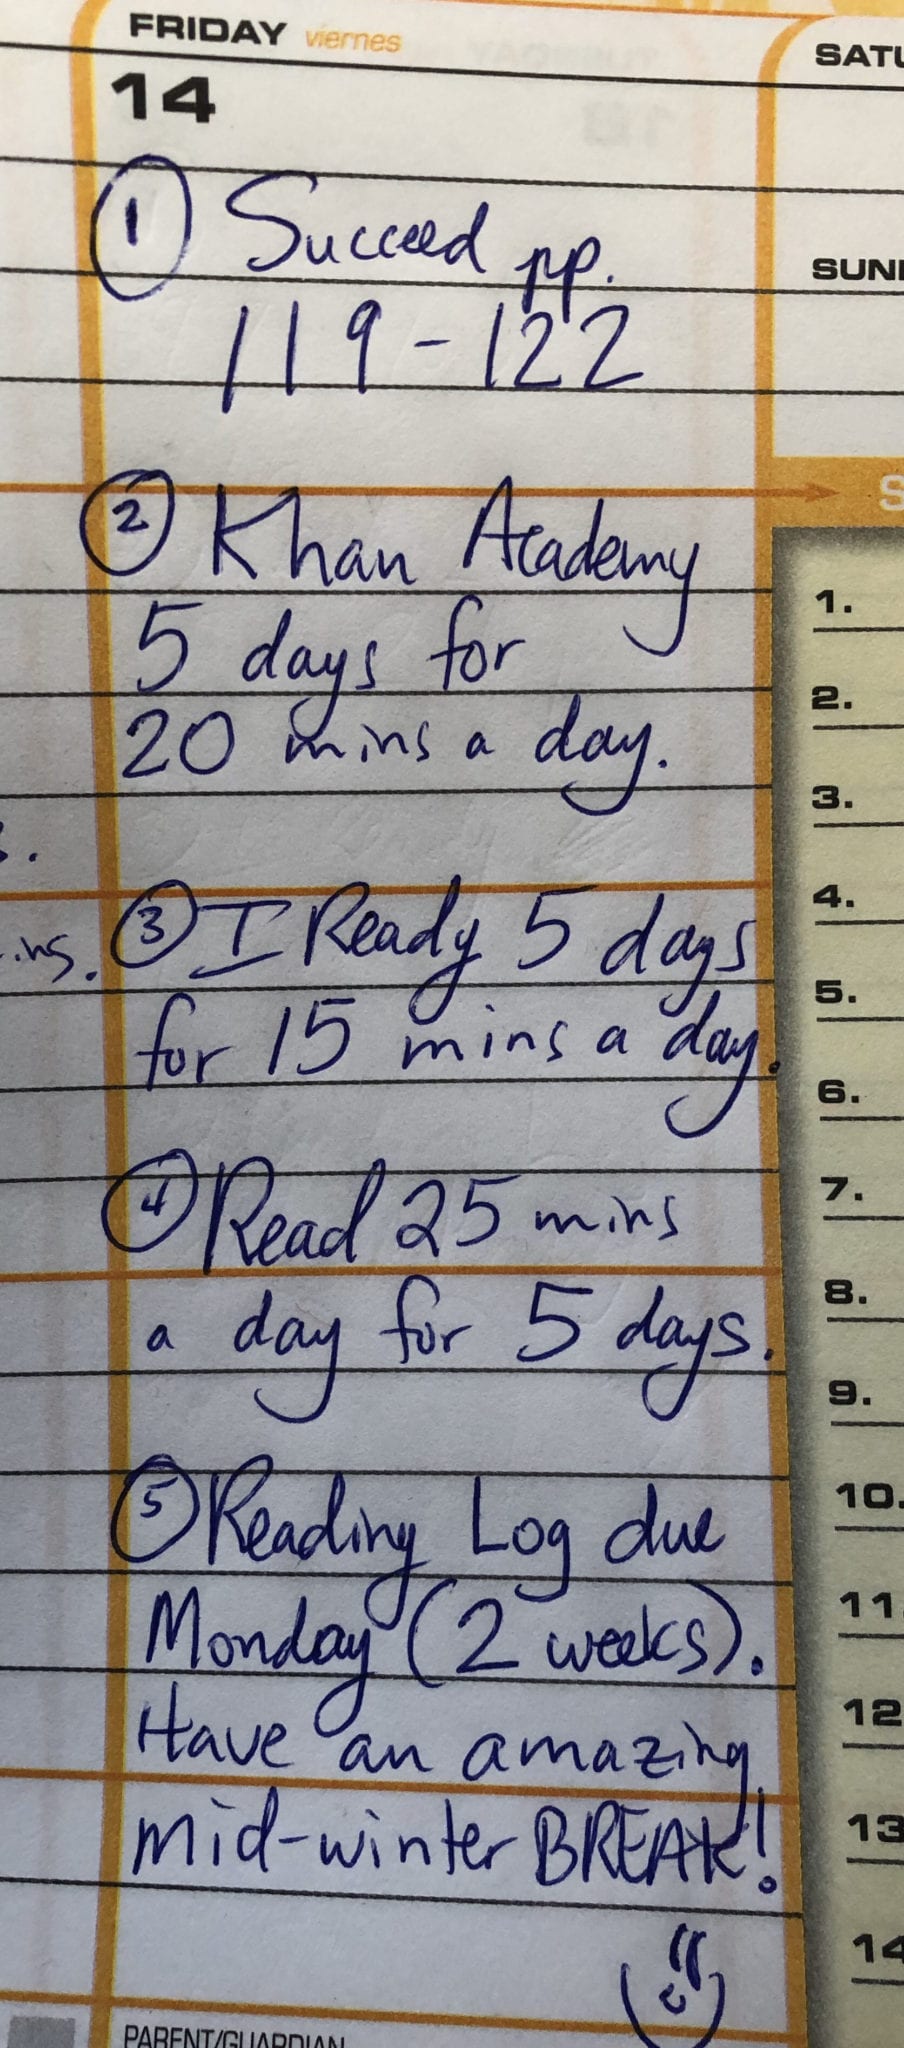 FRIDAY viernes
14
1 Succeed pp.
119-122
2 Khan Academy
5 days for
20 mins a day.
3 I Ready 5 days
for 15 mins a day.
4 Read 25 mins
a day for 5 days.
5 Reading Log due
Monday (2 weeks).
Have an amazing
mid-winter BREAK!
PARENT/GUARDIAN
SATU
SUN
S
1.
2.
3.
4.
5.
6.
7.
8.
9.
10.
11.
12
13
14